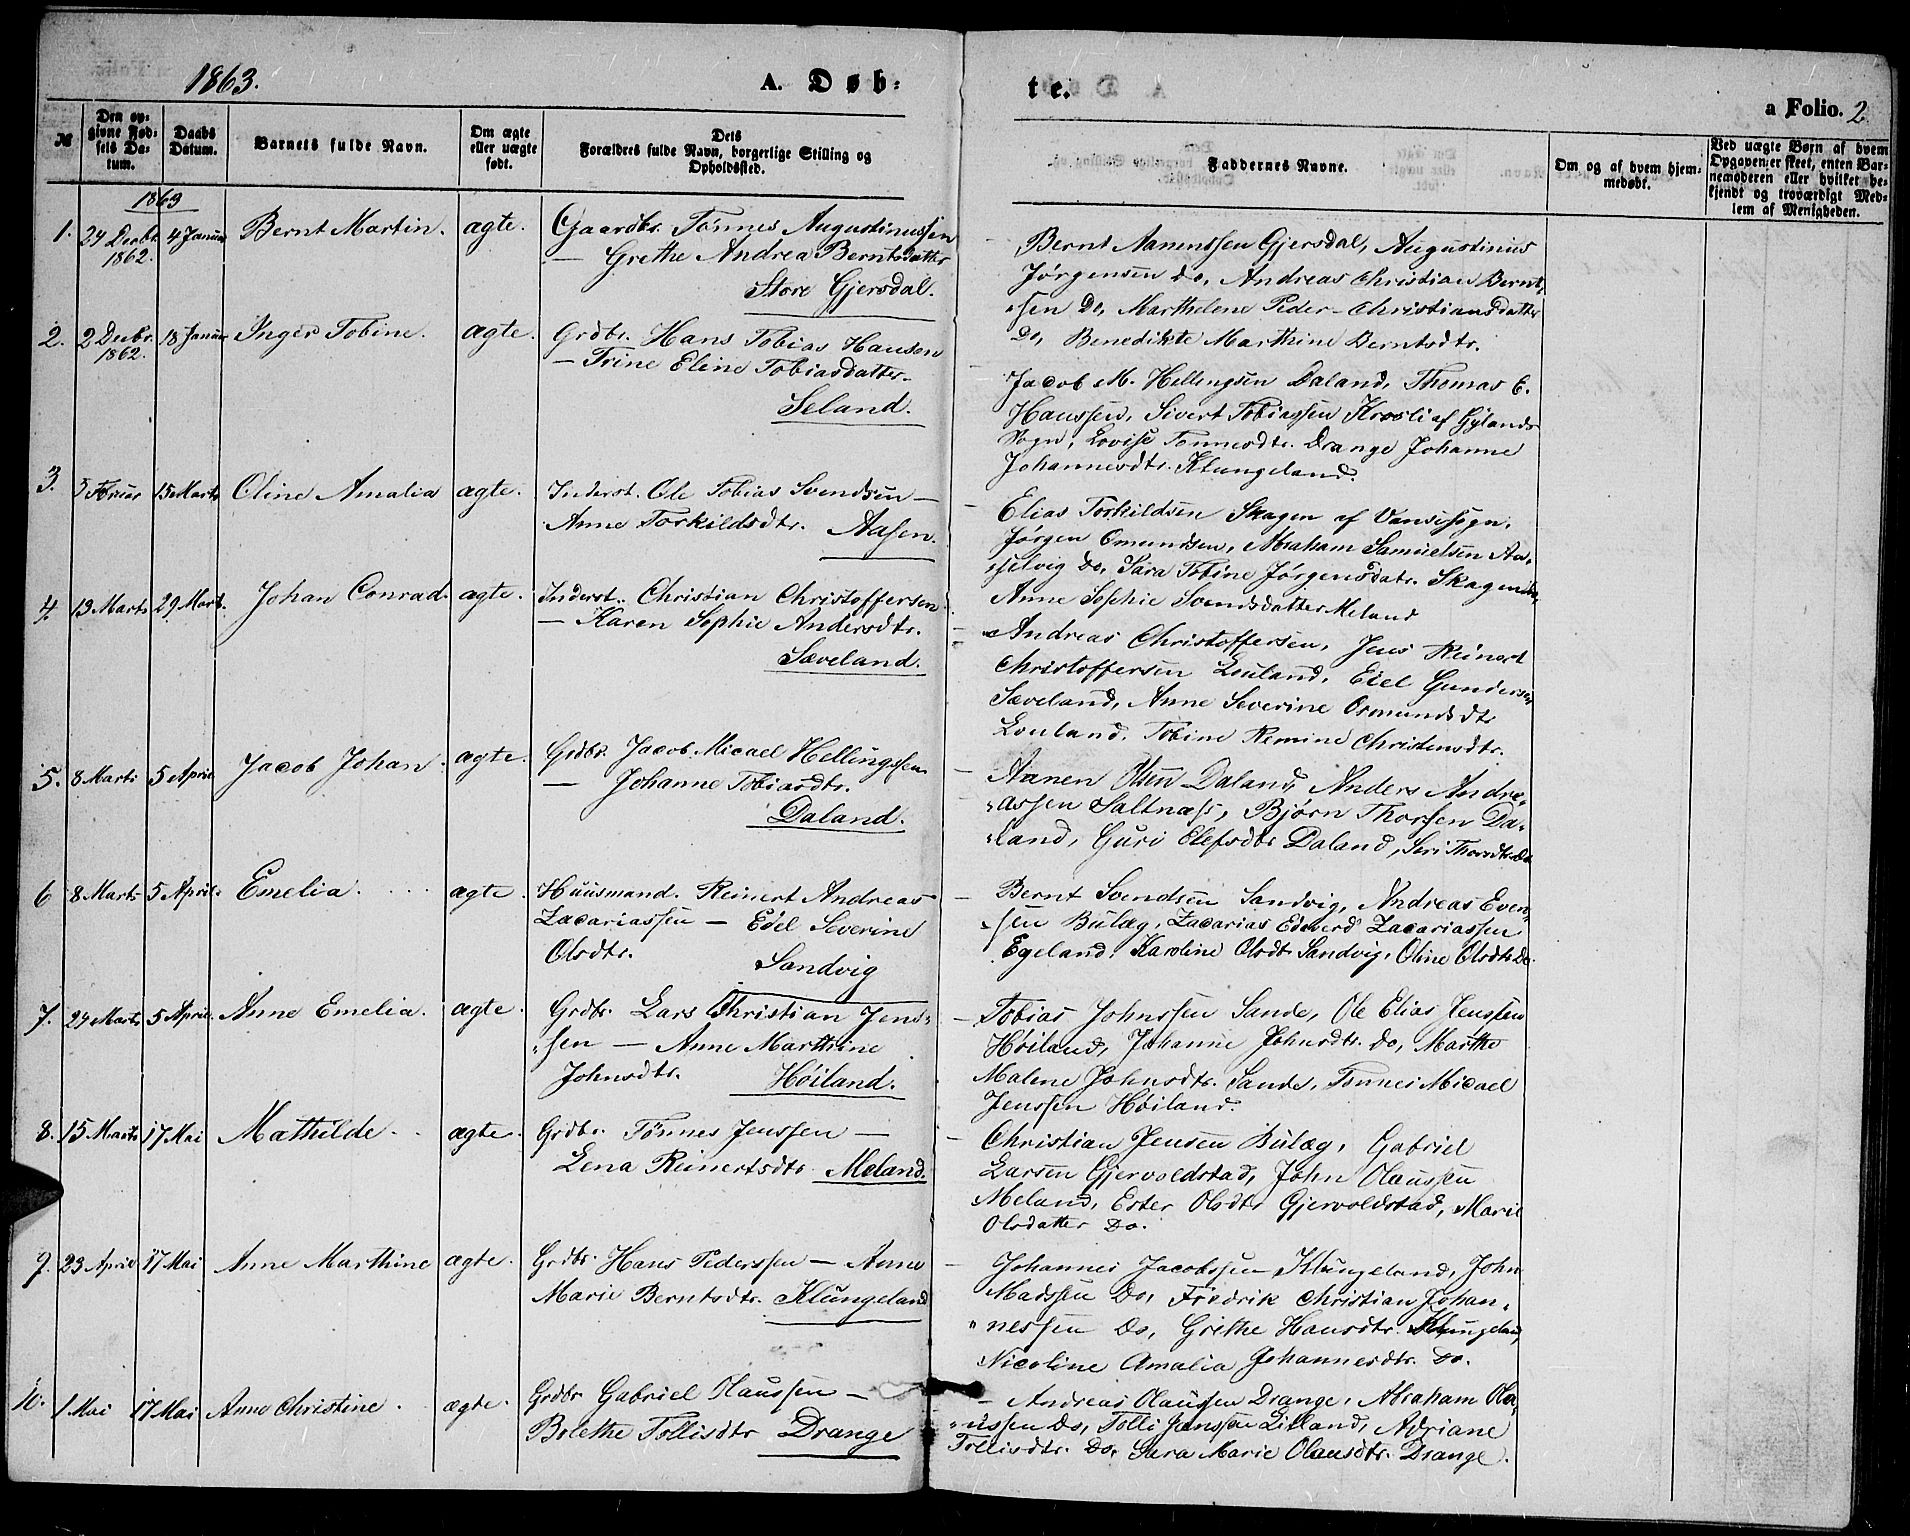 1863.
A. Døb-
te.
a Folio. 2
№
Den op-
givne Fød-
sels Da-
tum.
Daabs
Datum.
Barnets fulde Navn.
Om ægte
eller uægte
født.
Dets
Forældres fulde Navn, borgerlige Stilling og
Opholdssted.
Faddernes Navne.
Om og af hvem hjem-
medøbt.
Ved uægte Børn af hvem
Opgaven er skeet, enten Bar-
nemoderen eller hvilket be-
kjendt og troværdigt Med-
lem af Menigheden.
1863
1. 24 Decbr. 4 Januar Bernt Martin. ægte. Gaardbr. Tönnes Augustinussen
1862. — Grethe Andrea Berntsdatter
Store Gjersdal.
Bernt Aanenssen Gjersdal, Augustinius
Jörgensen do, Andreas Christian Bernt-
sen Do, Marthelene Peder-Christiansdatter
Do, Benedikte Marthine Berntsdtr.
2. 2 Decbr. 18 Januar Inger Tobine. ægte. Grdbr. Hans Tobias Hansen
1862. — Trine Eline Tobiasdatter
Seland.
Jacob M. Hellengsen Daland, Thomas E.
Hanssen, Sivert Tobiassen Krosli af Gylands
Sogn, Lovise Tönnesdtr. Drange Johanne
Johannesdtr. Klungeland.
3. 3 Februar 15 Marts Oline Amalia ægte. Inderst. Ole Tobias Svendsen —
Anne Torkildsdtr. Aasen.
Elias Torkildsen Skagen af Vanse Sogn,
Jörgen Omundsen, Abraham Samuelsen Aa-
selvig Do, Sara Tobine Jörgensdatr. Skagen
Anne Sophie Svendsdatter Meland
4 13 Marts 29 Marts. Johan Conrad. ægte. Inderst. Christian Christoffersen
— Karen Sophie Andersdtr.
Sæveland.
Andreas Christoffersen, Jens Reinert
Christoffersen Louland, Eiel Gundersen
Sæveland, Anne Severine Osmundsdtr
Louland. Tobine Remine Christensdtr.
5. 8 Marts 5 April Jacob Johan. ægte. Grdbr. Jacob Micael Hellingsen
— Johanne Tobiasdtr.
Daland.
Aanen Olsen Daland, Anders Andre-
assen Saltnæss, Bjørn Thorsen Da-
land, Guri Olefsdtr Daland, Siri
6 8 Marts 5 April. Emelia. ægte. Huusmand. Reinert Andreas
Zacariassen — Edel Severine
Olsdtr. Sandvig
Bernt Svendsen Sandvig, Andreas Even-
sen Bulæg, Zacarias Edeverd Zacariassen
Egeland. Karoline Olsdtr Sandvig. Oline Olsdtr Do.
7. 24 Marts 5 April. Anne Emelia. ægte. Grdbr. Lars Christian Jens-
sen — Anne Marthine
Johnsdtr. Höiland.
Tobias Johnssen Sande, Ole Elias Jenssen
Höiland, Johanne Johnsdtr. Do, Marthe
Malene Johnsdtr. Sande, Tönnes Micael
Jenssen Höiland.
8. 15 Marts 17 Mai Mathilde. ægte. Grdbr. Tönnes Jenssen —
Lena Reinertsdtr. Meland.
Christian Jensen Bulæg, Gabriel
Larsen Gjervoldstad, John Olaussen
Meland, Ester Olsdtr Gjervoldstad, Marie
Olsdatter Do.
9. 23 April 17 Mai Anne Marthine ægte. Grdbr. Hans Pederssen — Anne
Marie Berntsdtr. Klungeland
Johannes Jacobssen Klungeland, John
Madssen Do, Fredrik Christian Johan-
nessen Do, Grethe Hansdtr. Klungeland,
Nicoline Amalia Johannesdtr. Do.
10. 1 Mai 17 Mai Anne Christine. ægte. Grdbr Gabriel Olaussen —
Bolethe Tollisdtr Drange
Andreas Olaussen Drange, Abraham Ola-
ussen Do, Tolli Jenssen Litland, Adriane
Tollisdtr. Do, Sara Marie Olausdtr. Drange.